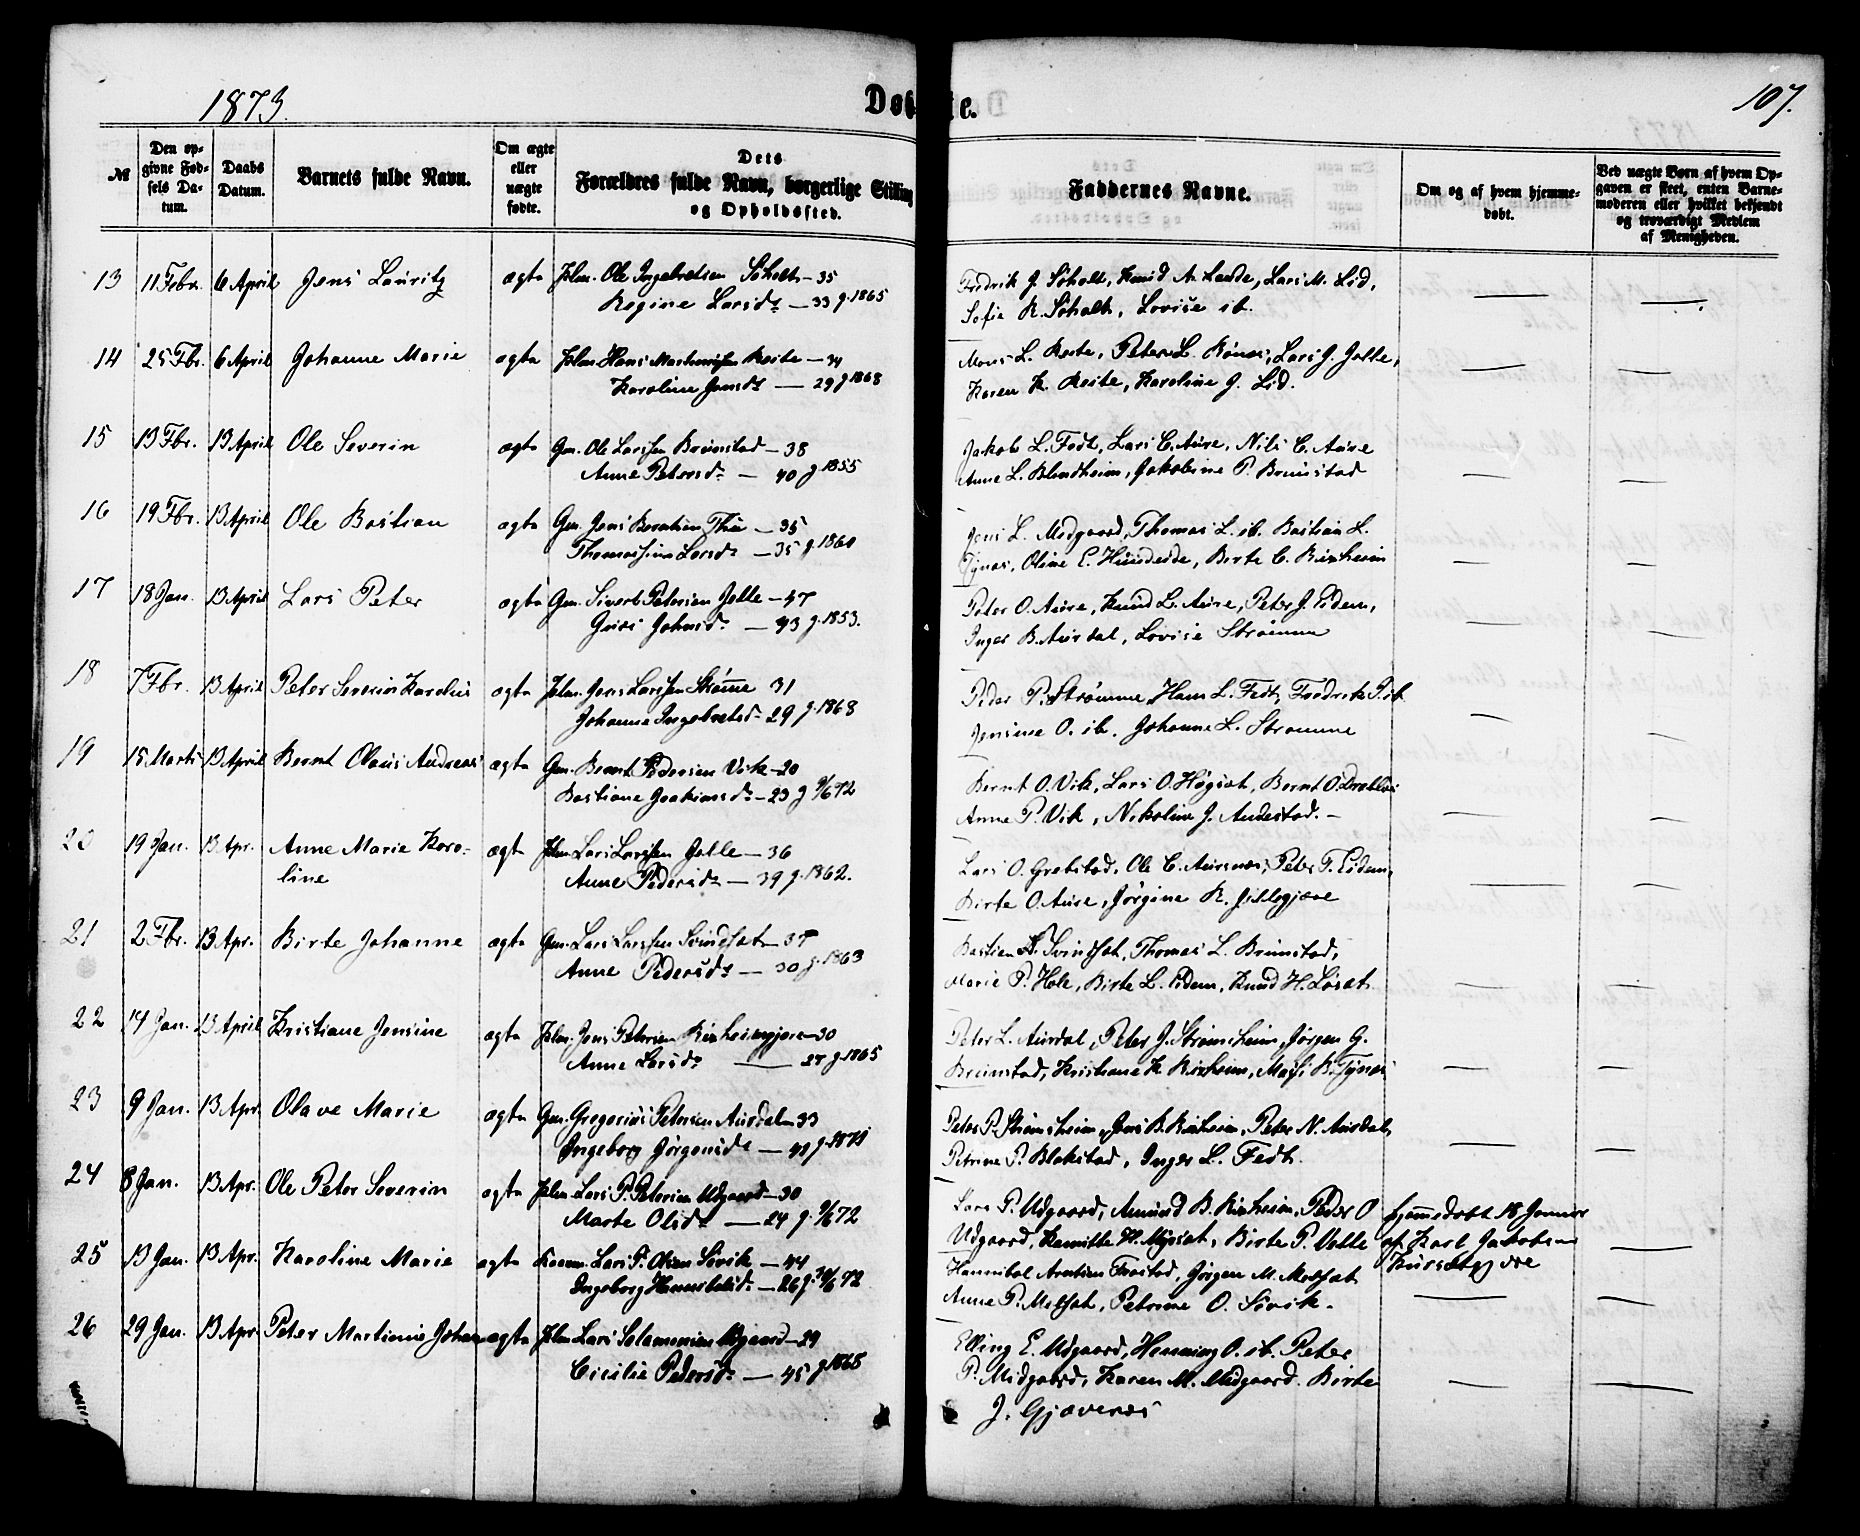 1873.
Døbte.
107.
№
Den opgivne Fødsels Datum.
Daabs Datum.
Barnets fulde Navn.
Om ægte eller uægte fødte.
Dets Forældres fulde Navn, borgerlige Stilling og Opholdssted.
Faddernes Navne.
Om og af hvem hjemmedøbt.
Ved uægte Børn af hvem Opgaven er skeet, enten Barnemoderen eller hvilket bekjendt og troværdigt Medlem af Menigheden.
13 11 Febr. 6 April Jens Lauritz ægte Jelm. Ole Ingebretsen Söholt – 35
Regine Larsdr – 33 g. 1865
Fredrik J. Söholt, Knud A. Lande, Lars M. Lid,
Sofie K. Söholt, Lovise ib.
14 25 Fbr. 6 April Johanne Marie ægte Jelm. Hans Martinusen Reite – 34
Karoline Jensdr – 29 g 1868
Mons L. Reite, Peter L. Rönes, Lars J. Jelle,
Karen K. Reite, Karoline J. Lid.
15 13 Fbr. 13 April Ole Severin ægte Gm. Ole Larssen Brunstad – 38
Anne Petersdr – 40 g 1855
Jakob L. Fedt, Lars C. Aure, Nils C. Aure
Anne L. Blindheim, Jakobine P. Brunstad
16 19 Fbr. 13 April Ole Bastian ægte Gm. Jens Berntsen Thue – 35
Thomassine Larsdr – 35 g. 1860
Jens L. Midgaard, Thomas L. ib. Bastian L.
Tynes, Oline E. Hundeide, Birte C. Rixheim
17 18 Jan. 13 April Lars Peter ægte Gm. Sivert Petersen Jelle – 47
Guri Johnsdr – 43 g. 1853.
Peter O. Aure, Knud L. Aure, Peter J. Eidem,
Inger B. Aursdal, Lovise Strømme
18 7 Fbr. 13 April Peter Severin Karolus ægte Jelm. Jens Larssen Strømme 31
Johanne Ingebretsdr 29 g. 1868
Peder P. Strømme, Hans L. Fedt, Fredrik P. ib.
Jensine O. ib. Johanne L. Strømme
19 15 Marts 13 April Bernt Olaus Andreas ægte Gm. Bernt Pedersen Vik – 20
Bastiane Joakimsdr – 23 g 9/6 72
Bernt O. Vik, Lars O. Høgset, Bernt O.
Anne P. Vik, Nikoline J. Andestad. –
20 19 Jan. 13 Apr. Anne Marie Karo-
line ægte Jelm. Lars Larssen Jelle – 36
Anne Pedersdr – 39 g. 1862.
Lars O. Grebstad, Ole C. Aursnes, Peter T. Eidem,
Birte O. Aure, Jørgine K. Jellegjære
21 2 Fbr. 13 Apr. Birte Johanne ægte Gm. Lars Larssen Svindset – 37
Anne Pedersdr – 30 g. 1863
Bastian Svindset, Thomas L. Brunstad,
Marie P. Hole, Birte L. Eidem, Knud H. Løset
22 14 Jan. 13 April Kristiane Jensine ægte Jelm. Jens Petersen Rixheimgjære – 30
Anne Larsdr – 27 g 1865
Peter L. Aursdal, Peter J. Strømsheim, Jørgen G.
Brunstad, Kristiane K. Rixheim, B. Tynes
23 9 Jan. 13 Apr. Olave Marie ægte Gm. Gregorius Petersen Aursdal – 33
Ingeborg Jørgensdr – 41 g. 1871
Peter P. Strømsheim, Jens B. Rixheim, Peter N. Aursdal,
Petrine P. Blakstad, Inger L. Fedt.
24 8 Jan. 13 Apr. Ole Peter Severin ægte Jelm. Lars P. Petersen Udgaard – 30
Marte Olsdr – 24 g. 9/6 72
Lars P. Udgaard, Amund B. Rixheim, Peder O
Udgaard, Kamilla H. Myrset, Birte P. Velle
hjemmedøbt 18 Januar
af Karl Jakobsen
Kursetgjære
25 13 Jan. 13 Apr. Karoline Marie ægte Lars P. Olsen Søvik – 44
Ingeborg Hannibalsdr – 26 g. 72
Hannibal Arntsen Frostad, Jørgen M. Melset
Anne P. Melset, Petrine O. Søvik.
26 29 Jan. 13 Apr. Peter Martinus Johan ægte Jelm. Lars Salamonsen Udgaard – 29
Cicilie Pedersdr – 45 g 1865
Elling E. Udgaard, Henning O. ib. Peter
P. Midgaard, Karen M. Midgaard. Birte
J. Gjævenes